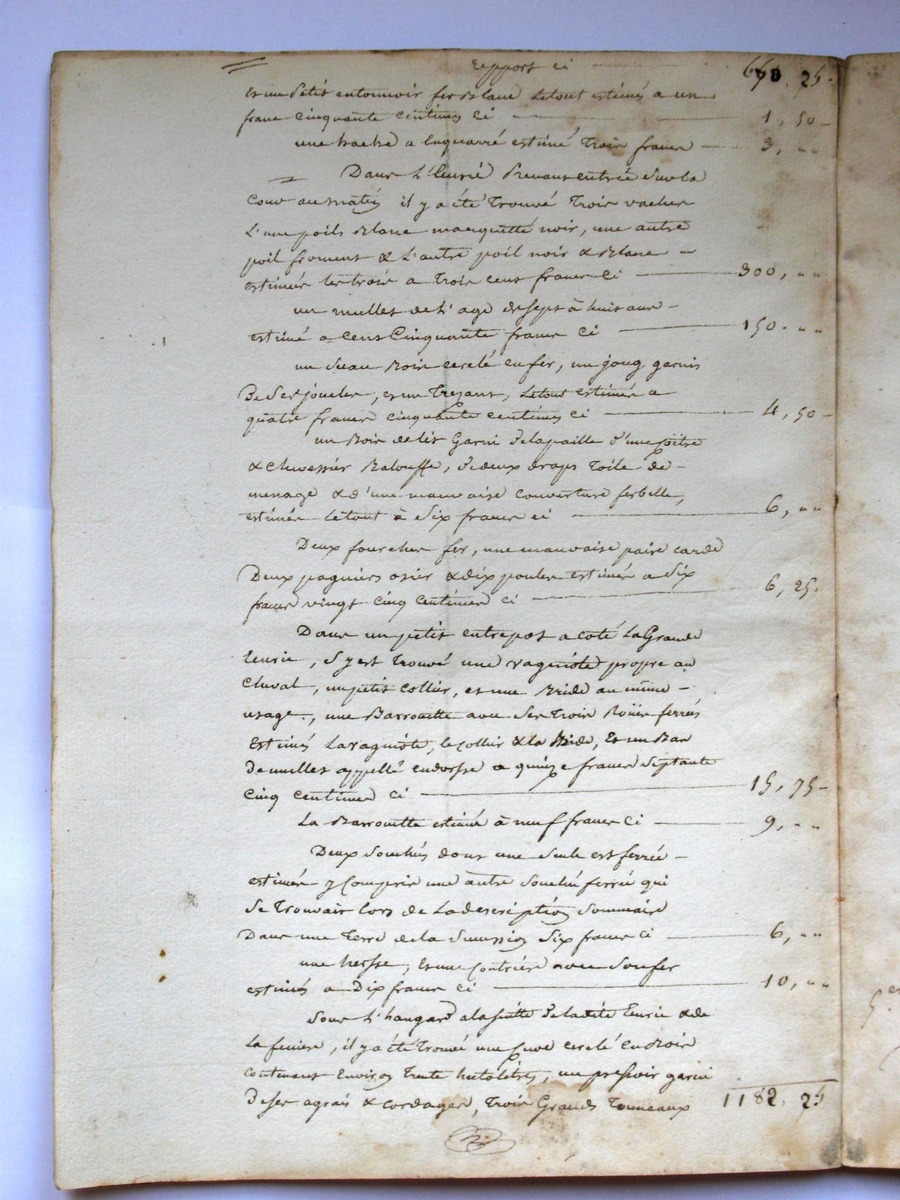 Report ci 670. 25
et un petit entonnoir fer blanc Letout estimés a un
franc cinquante centimes ci 1, 50
une hache a Equarré estimé Trois francs 3, "
Dans L'Eurié Prenant entrée Sur la
Cour au matin il y a été Trouvé Trois vaches
L'une poils blanc marquetté noir, une autre
poil froment & L'autre poil noir & blanc
estimées les trois a Trois cens francs ci 300, "
un mullet de l'age de sept à huit ans
estimé a cens Cinquante francs ci 150. "
un Seau Bois cerclé en fer, un joug garnis
De Ses joucles, et un Trezant, Letout estimés a
quatre francs cinquante centimes ci 4, 50
un Bois de lit Garni de la paille d'une
& Balouffe, de deux draps Toile de
menage & d'une mauvaise couverture
estimés Letout à Six francs ci 6, "
Deux fourches fer, une mauvaise paire carde
Deux pagniers osier & dix poules estimés a Six
francs vingt cinq centimes ci 6, 25.
Dans un petit entrepot a coté La Grande
Eurie, S'y est Trouvé une vagniote propre au
Cheval, un petit collier, et une Bride au même
usage, une Barrouette avec Ses Trois Roües ferrées
Estimés La vagniote, le collier & la Bride, Et un Bas
De mullet appellé endosse a quinze francs Septante
Cinq centimes ci 15, 75
La Barrouette estimée à neuf francs ci 9, "
Deux Souchés dont une Seule est ferrée
estimées y Compris une autre Souché ferrée qui
Se Trouvait lors de La description Sommaire
Dans une Terre de la Six francs ci 6, "
une herse, Et une Coutrière avec Son fer
estimés a Dix francs ci 10, "
Sous L'hangard a la suitte de la dite Eurie & de
La feniere, il y a été Trouvé une Cuve cerclé en Bois
contenant Environ Trente hectolitres, un pressoir garni
de Ses agrais & cordages, Trois Grands Tonneaux 1182. 25